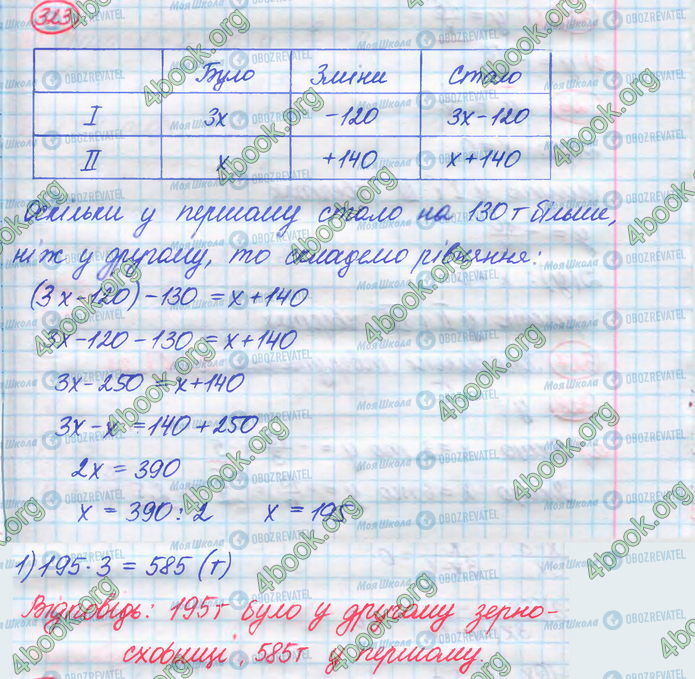 323
Було Зміни Стало
I 3x -120 3x-120
II x +140 x+140
Оскільки у першому стало на 130 т більше,
ніж у другому, то складемо рівняння:
(3x-120)-130 = x+140
3x-120-130 = x+140
3x-250 = x+140
3x-x = 140+250
2x = 390
x = 390:2 x = 195
1) 195·3 = 585 (т)
Відповідь: 195т було у другому зерно-
сховищі, 585т у першому.